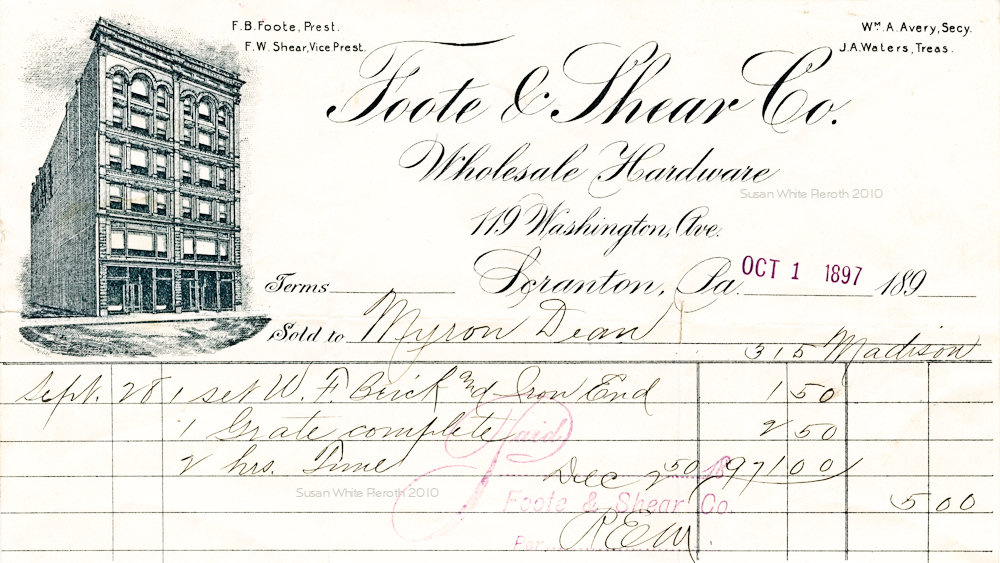 F.B. Foote, Prest.
F.W. Shear, Vice Prest.
Wm. A. Avery, Secy.
J.A. Waters, Treas.
Foote & Shear Co.
Wholesale Hardware
Susan White Pieroth 2010
119 Washington, Ave.
Terms Scranton, Pa. OCT 1 1897 189
Sold to Myron Dean
315 Madison
Sept. 28 1 set W. F. Brick and Iron End 1 50
1 Grate complete 2 50
2 hrs. Time 50 1 00
Paid
Dec 2 1897
Susan White Pieroth 2010
Foote & Shear Co. 5 00
Per R.E.W.